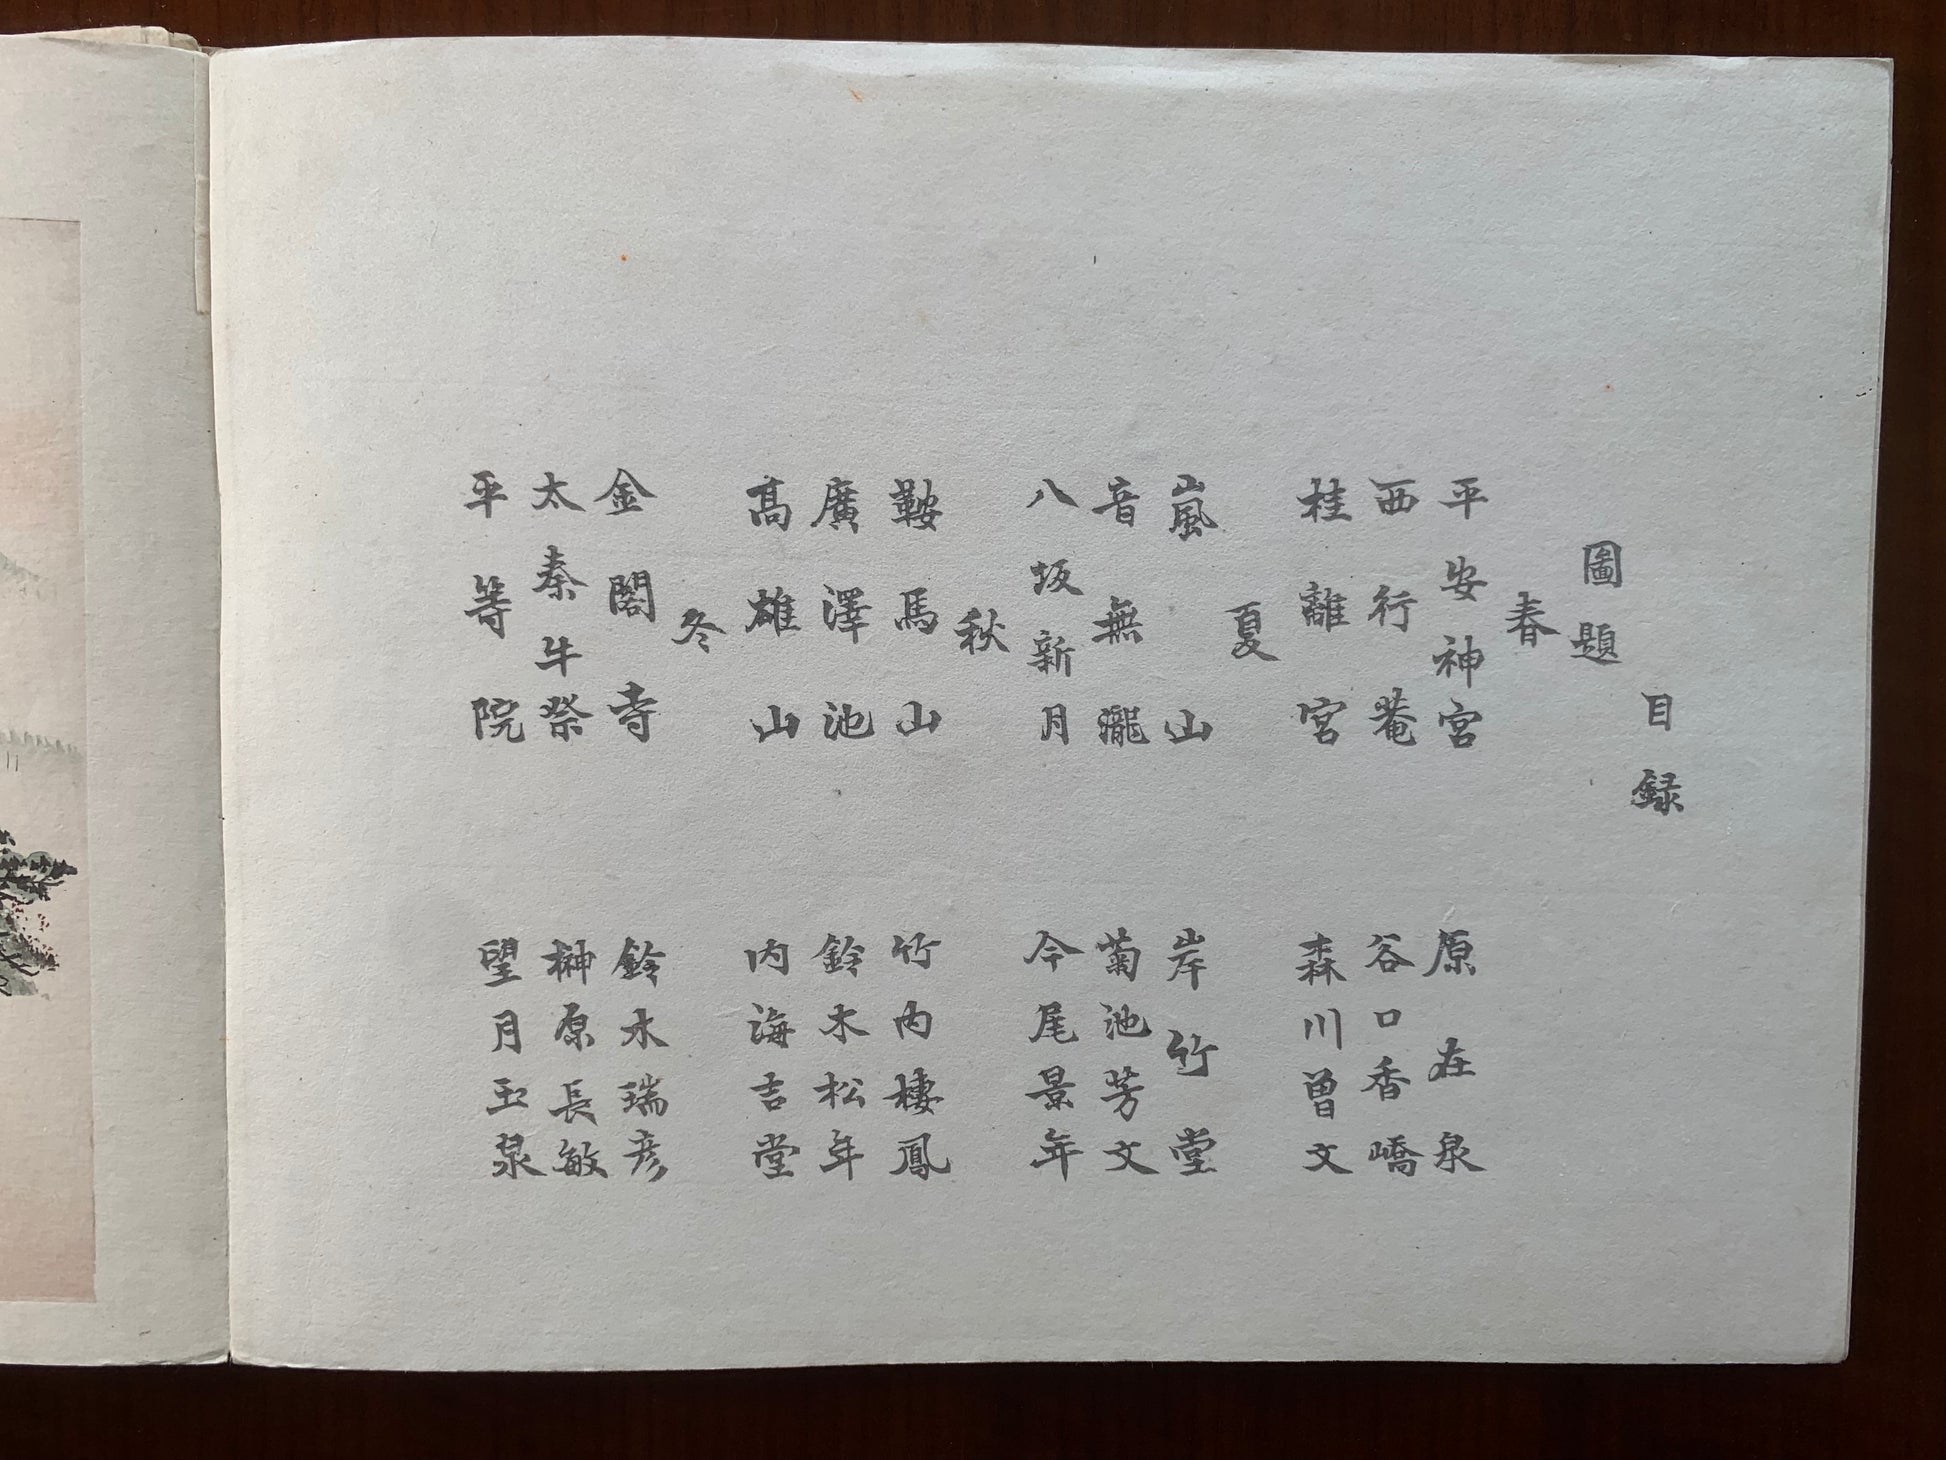 目録
圖題
春
平安神宮 原在泉
西行菴 谷口香嶠
桂離宮 森川曽文
夏
嵐山 岸竹堂
音無瀧 菊池芳文
八坂新月 今尾景年
秋
鞍馬山 竹内棲鳳
廣澤池 鈴木松年
髙雄山 内海吉堂
冬
金閣寺 鈴木瑞彦
太秦牛祭 榊原長敏
平等院 望月玉泉